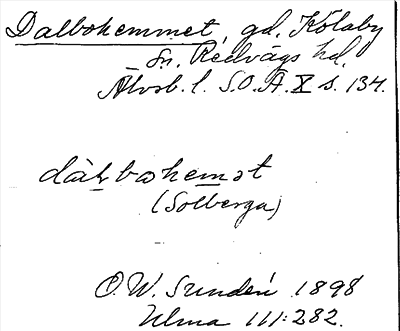 Dalbohemmet, gd, Kölaby
sn, Redvägs hd,
Älvsb. l. S.O.Ä. X s. 134.
(Solberga)
O. W. Sundén 1898
Ulma 111:282.